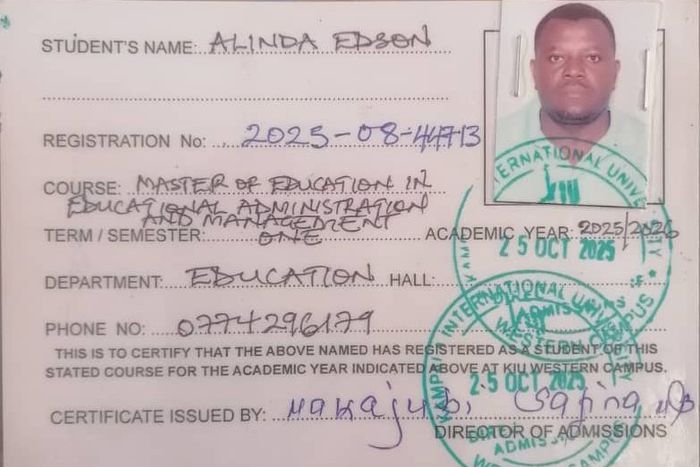 STUDENT'S NAME: ALINDA EDSON
REGISTRATION No: 2025-08-44713
COURSE: MASTER OF EDUCATION IN
EDUCATIONAL ADMINISTRATION
AND MANAGEMENT
TERM / SEMESTER: ONE ACADEMIC YEAR: 2025/2026
DEPARTMENT: EDUCATION HALL:
PHONE NO: 0774296179
THIS IS TO CERTIFY THAT THE ABOVE NAMED HAS REGISTERED AS A STUDENT OF THIS
STATED COURSE FOR THE ACADEMIC YEAR INDICATED ABOVE AT KIU WESTERN CAMPUS.
CERTIFICATE ISSUED BY:
DIRECTOR OF ADMISSIONS
INTERNATIONAL UNIVERSITY
KIU
25 OCT 2025
KAMPALA INTERNATIONAL UNIVERSITY
WESTERN
25 OCT 2025
ADMISSIONS
WESTERN CAMPUS